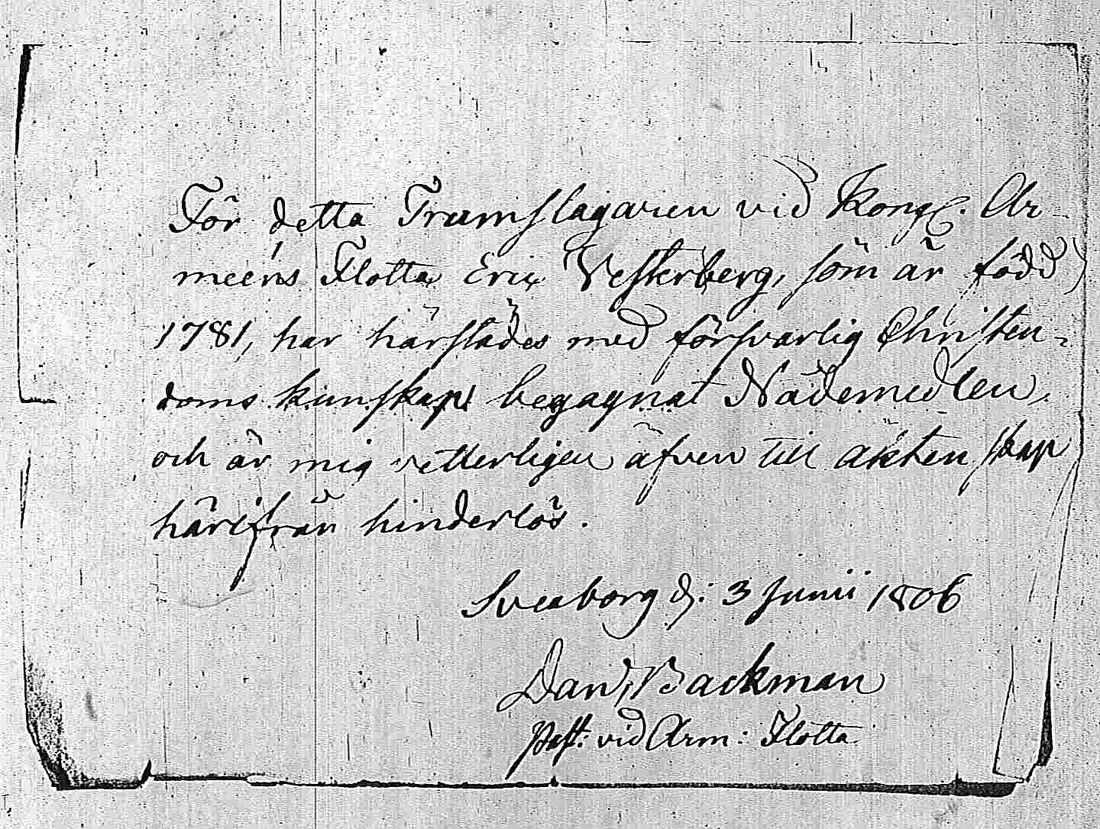 För detta Trumslagaren vid Kongl. Ar-
meens Flotta Eric Vesterberg, som är född
1781, har härstädes med försvarlig Christen-
doms kunskap begagnat Nådemedlen,
och är mig vetterligen äfven till äktenskap
härifrån hinderlös.
Sveaborg d: 3 Junii 1806
Dan, Backman
Past: vid Arm: Flotta